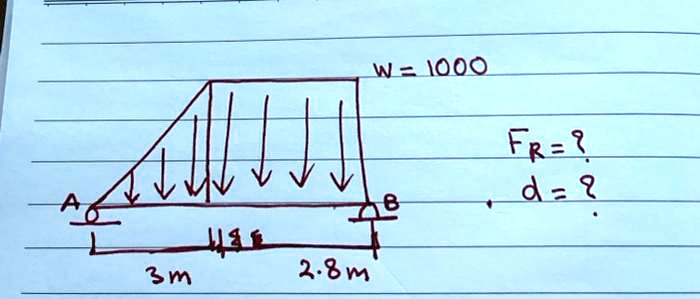 W = 1000
FR = ?
d = ?
A
B
3m
2.8m